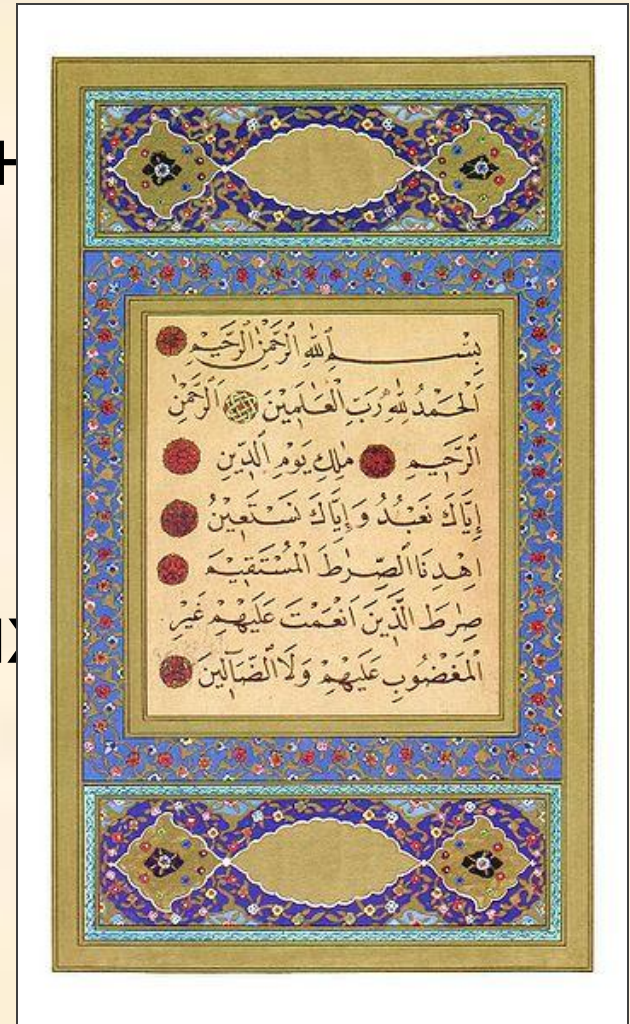 بِسْــــــمِ ٱللّٰهِ ٱلرَّحْمٰنِ ٱلرَّحِيمِ
اَلْحَمْدُ لِلّٰهِ رَبِّ الْعَالَمِينَ اَلرَّحْمٰنِ
الرَّحِيمِ مٰلِكِ يَوْمِ الدِّينِ
إِيَّاكَ نَعْبُدُ وَإِيَّاكَ نَسْتَعِينُ
اِهْدِنَا الصِّرٰطَ الْمُسْتَقِيمَ
صِرٰطَ الَّذِينَ اَنْعَمْتَ عَلَيْهِمْ غَيْرِ
الْمَغْضُوبِ عَلَيْهِمْ وَلَا الضَّآلِّينَ